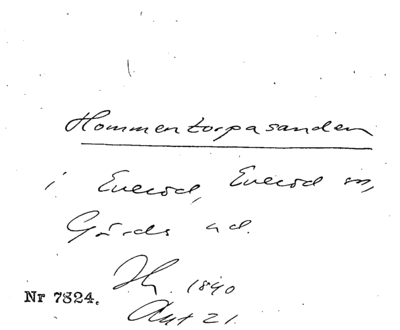 Hommentorpasanden
i Everöd, Everöd sn,
Gärds hd.
1840
Nr 7824.
Akt 21.